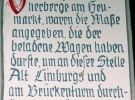 Oneberge am Heu-
markt, waren die Maße
angegeben, die der
beladene Wagen haben
durfte, um an dieser Stelle
Alt Limburgs und
am Brückenturm durch-